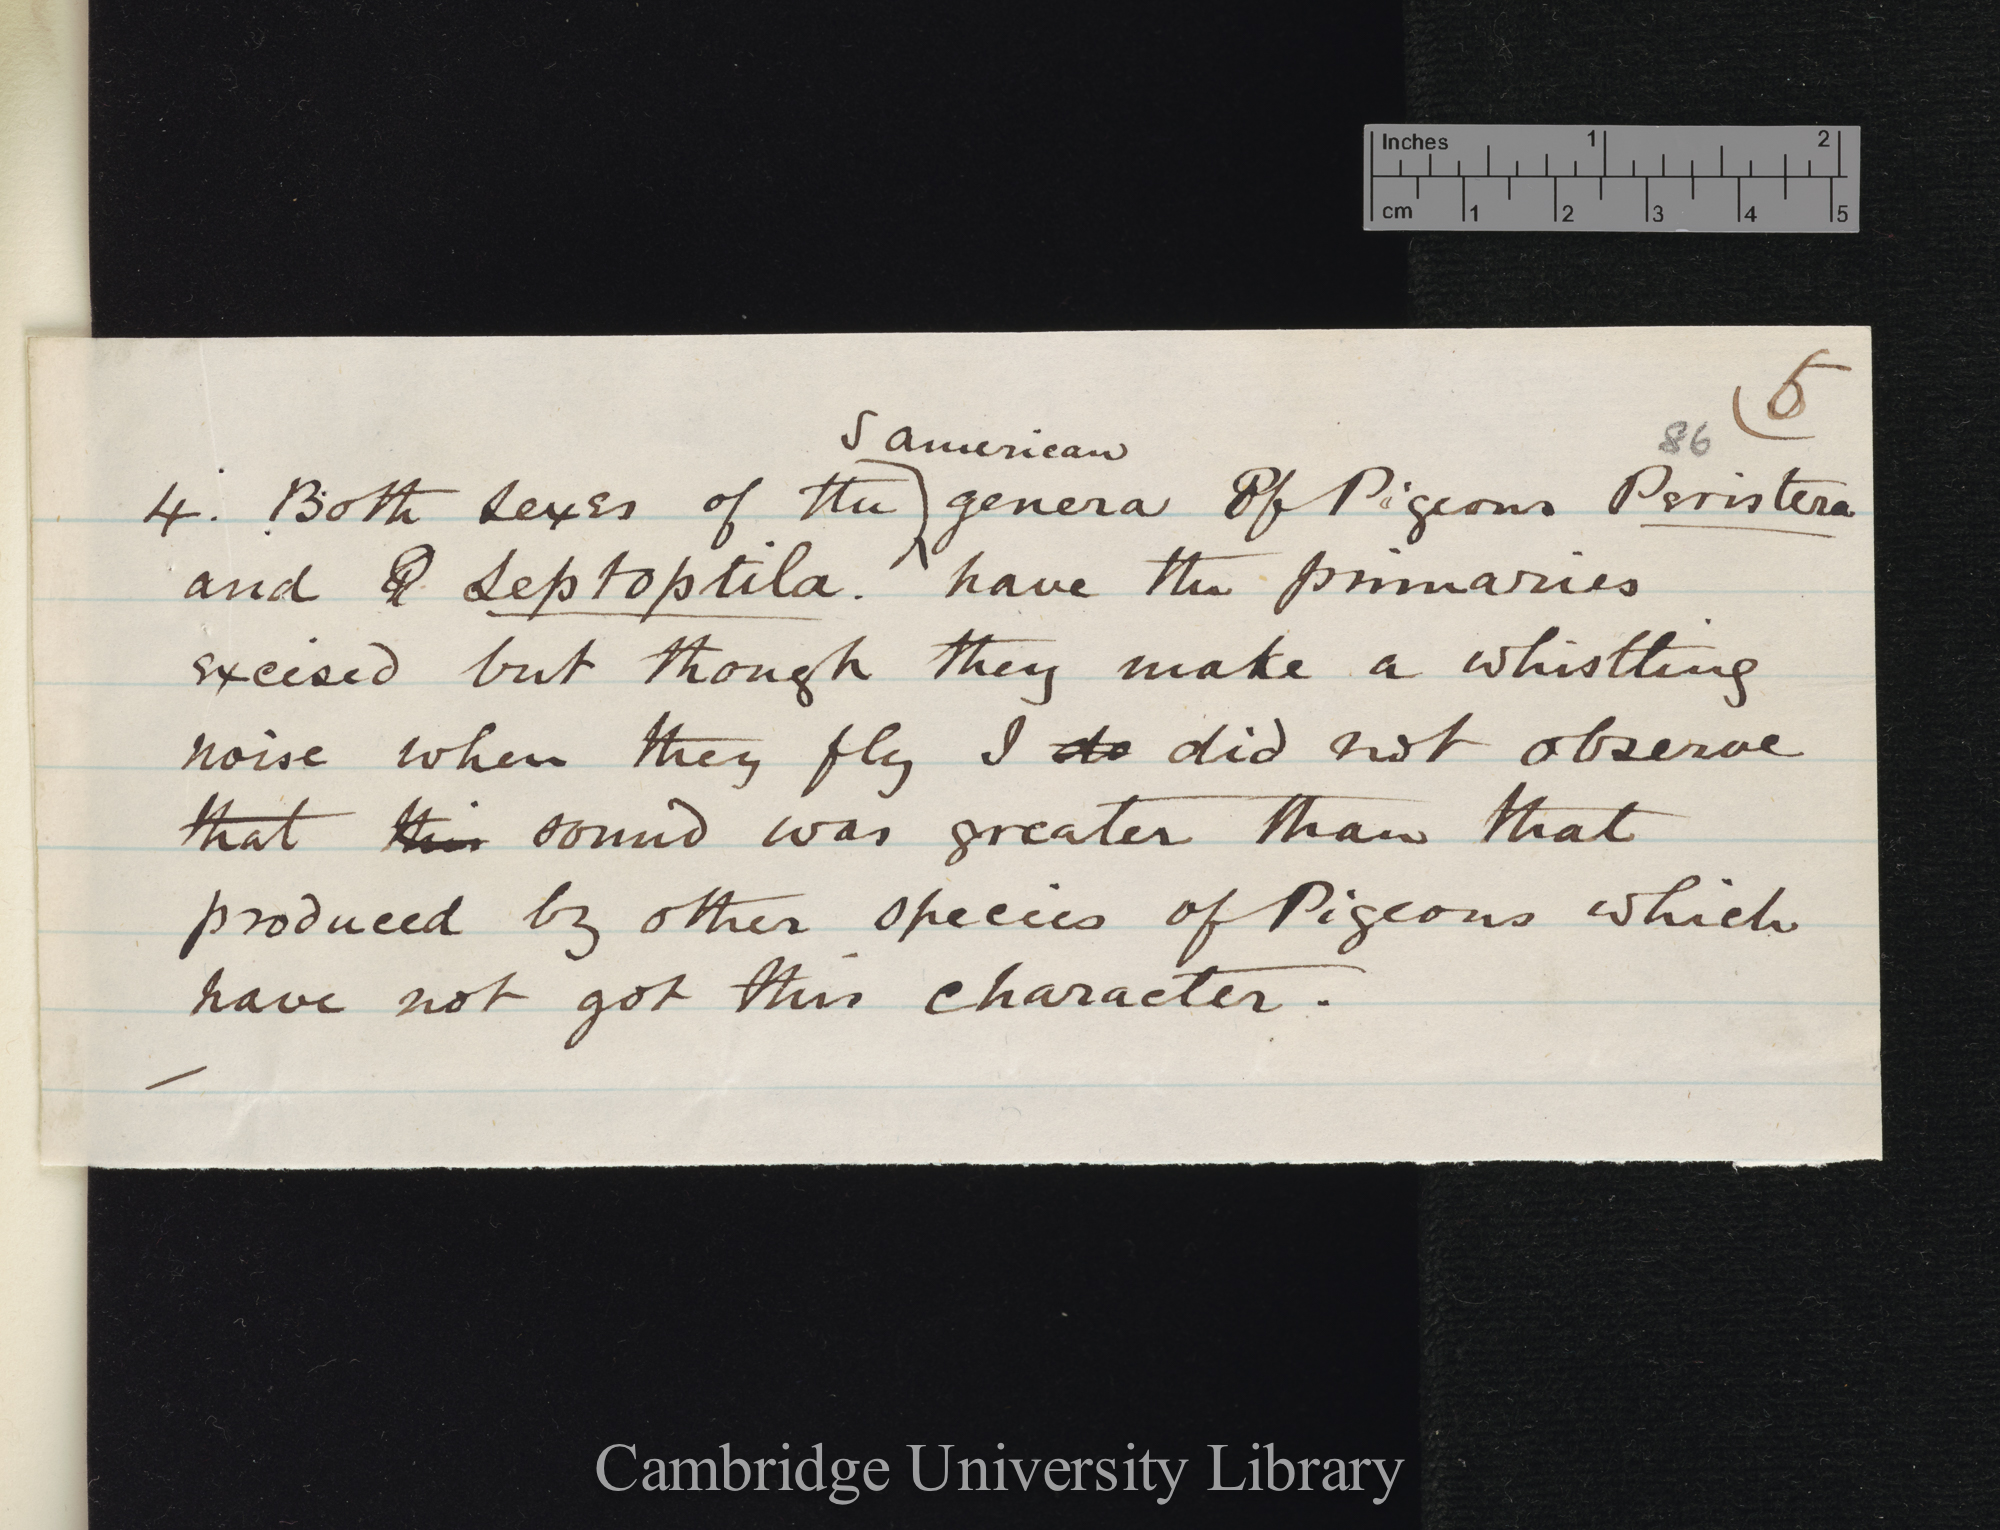 Inches 1 2
cm 1 2 3 4 5
5
86
S american
4. Both sexes of the genera of Pigeons Peristera
and Leptoptila. have the primaries
excised but though they make a whistling
noise when they fly I do did not observe
that this sound was greater than that
produced by other species of Pigeons which
have not got this character.
Cambridge University Library